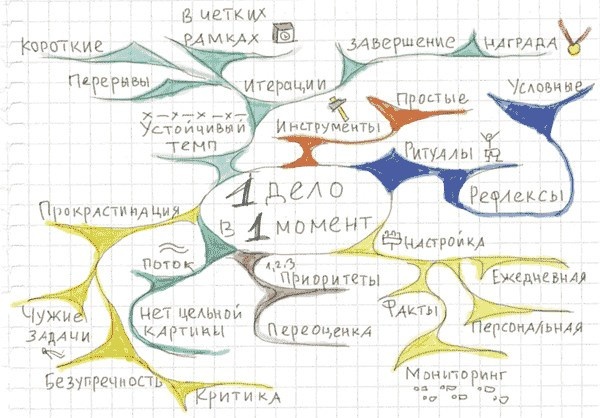 В четких
рамках
Короткие
Перерывы
Итерации
Завершение
Награда
Условные
Простые
Инструменты
Устойчивый
темп
Ритуалы
Рефлексы
1 дело
в 1 момент
Прокрастинация
Поток
1,2,3
Приоритеты
Настройка
Ежедневная
Чужие
задачи
Нет цельной
картины
Переоценка
Факты
Персональная
Мониторинг
Безупречность
Критика